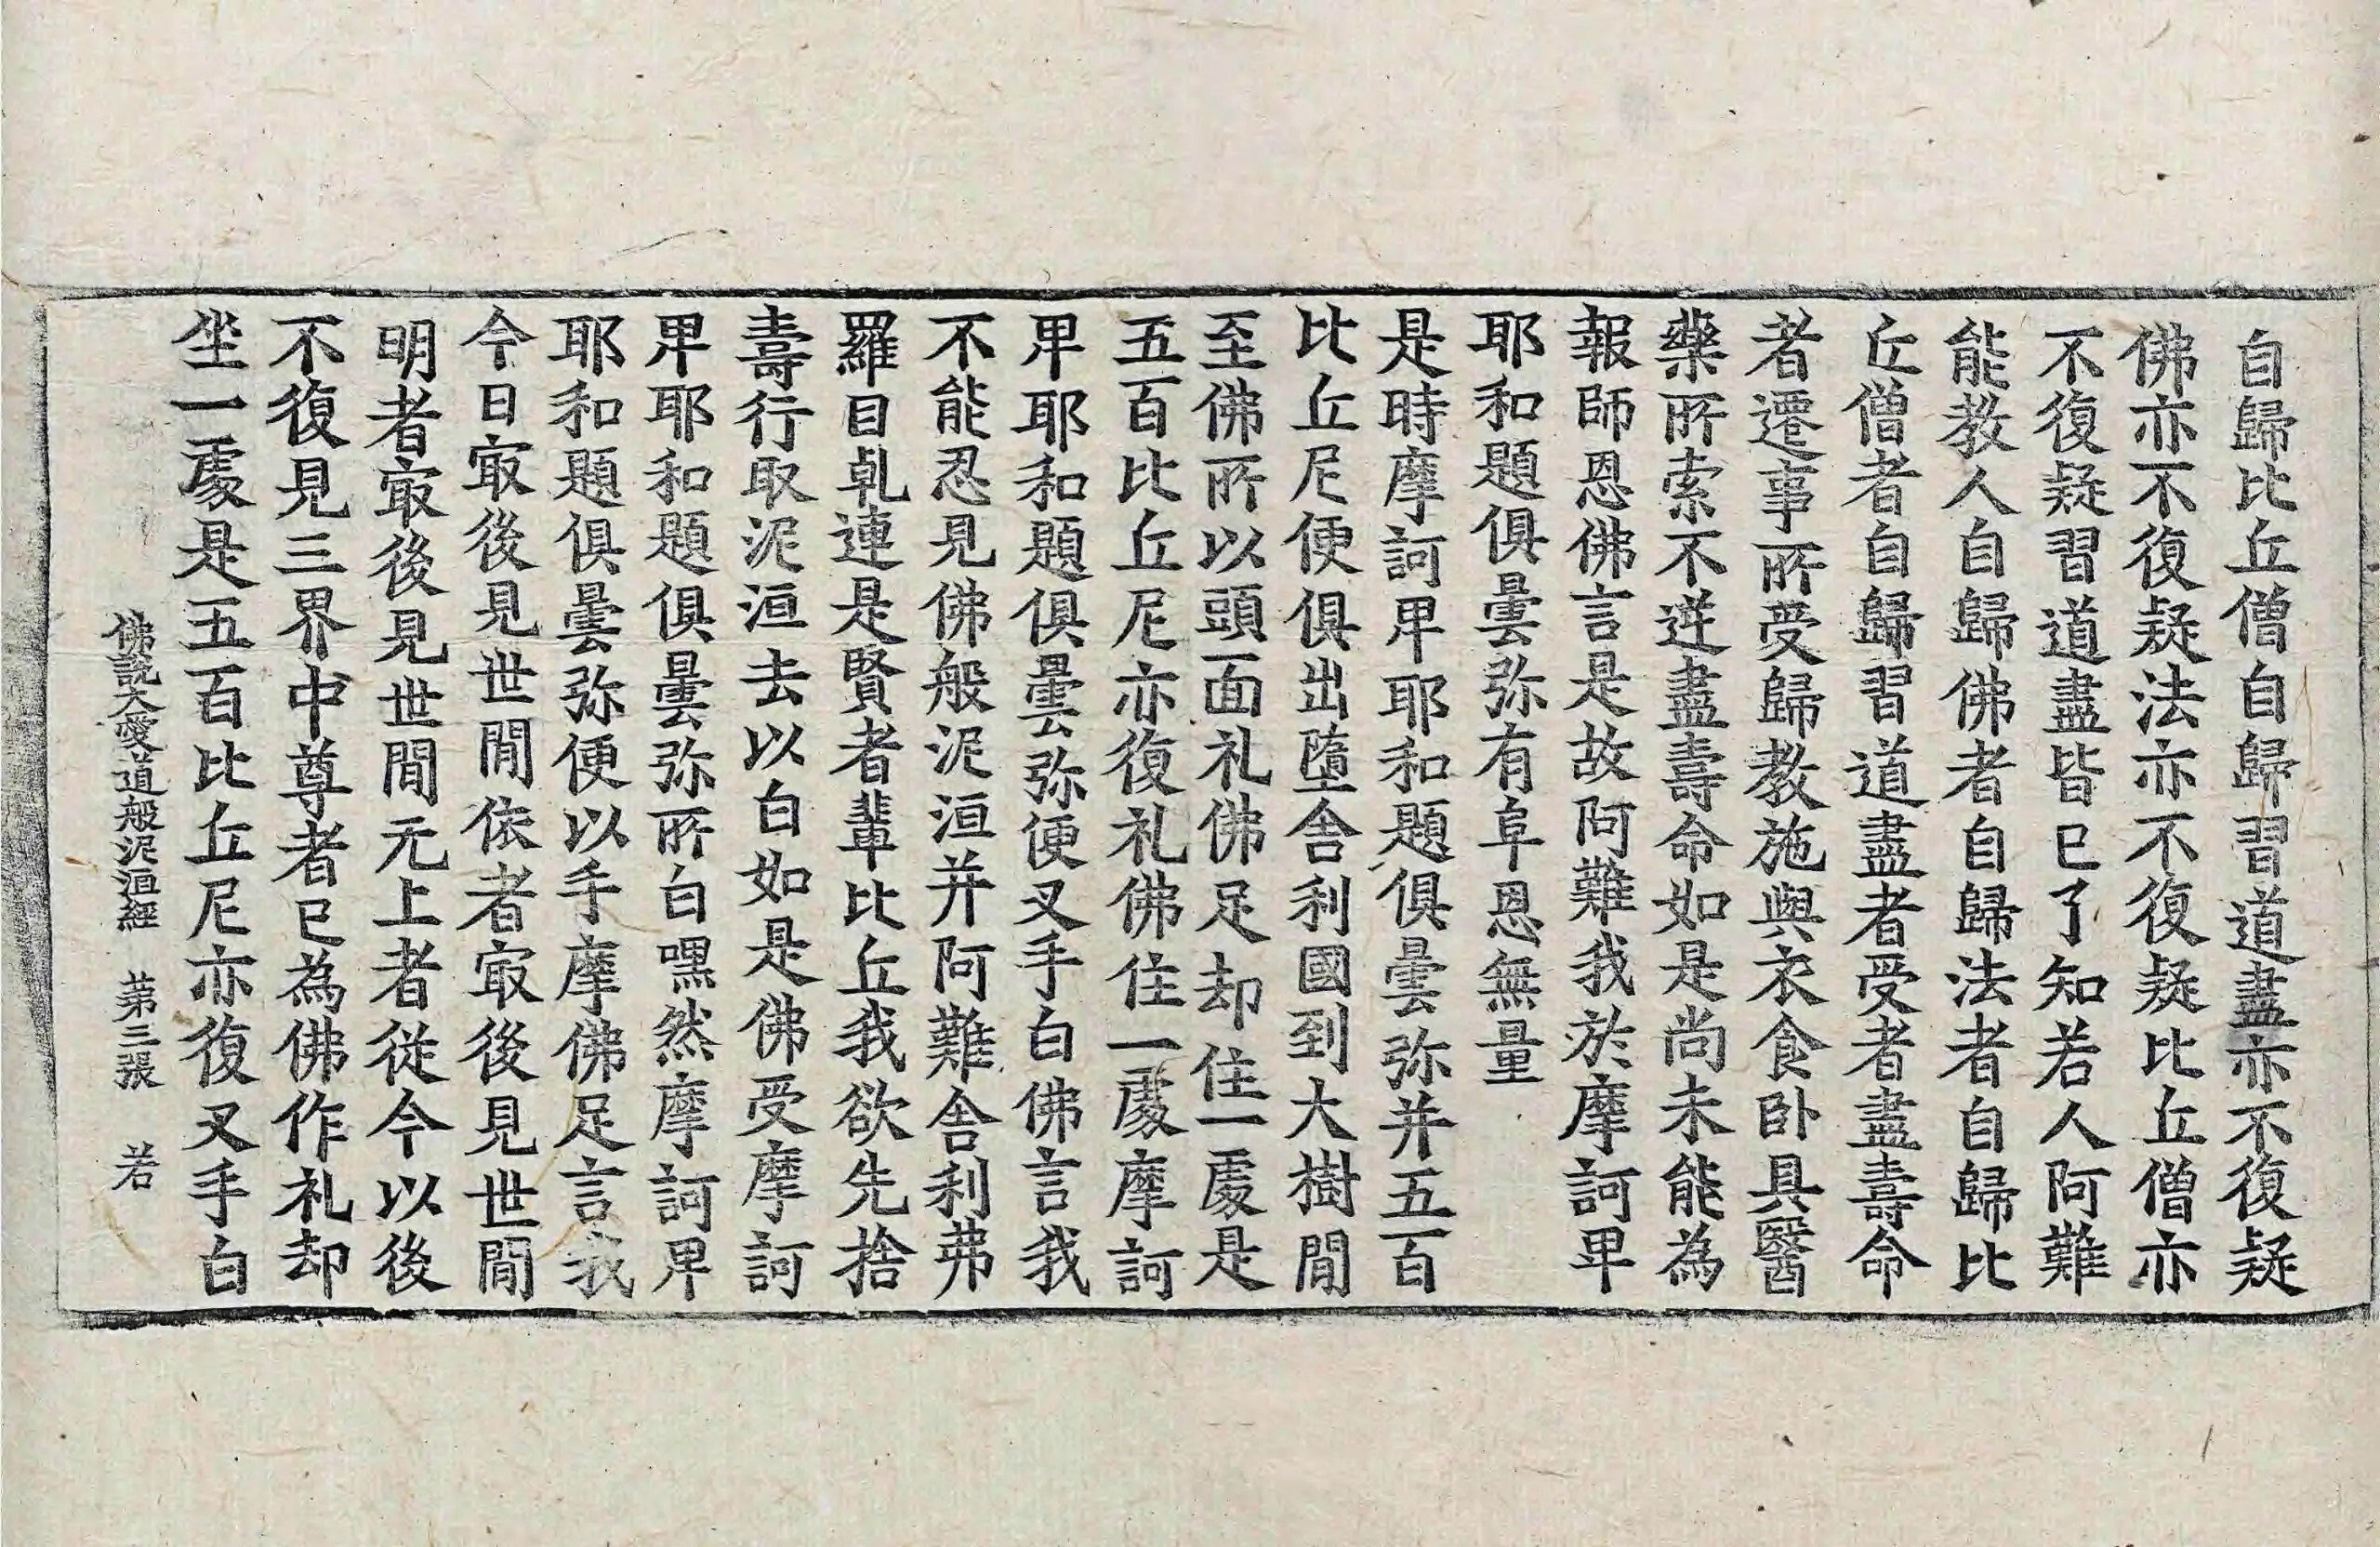 自歸比丘僧自歸習道盡亦不復疑
佛亦不復疑法亦不復疑比丘僧亦
不復疑習道盡皆已了知若人阿難
能教人自歸佛者自歸法者自歸比
丘僧者自歸習道盡者受者盡壽命
者遷事所受歸教施與衣食卧具醫
藥所索不逆盡壽命如是尚未能為
報師恩佛言是故阿難我於摩訶卑
耶和題俱曇弥有阜恩無量
是時摩訶卑耶和題俱曇弥并五百
比丘尼便俱出墮舍利國到大樹閒
至佛所以頭面礼佛足却住一處是
五百比丘尼亦復礼佛住一處摩訶
卑耶和題俱曇弥便叉手白佛言我
不能忍見佛般泥洹并阿難舍利弗
羅目乹連是賢者輩比丘我欲先捨
壽行取泥洹去以白如是佛受摩訶
卑耶和題俱曇弥所白嘿然摩訶卑
耶和題俱曇弥便以手摩佛足言我
今日㝡後見世閒依者㝡後見世閒
明者㝡後見世閒无上者從今以後
不復見三界中尊者已為佛作礼却
坐一處是五百比丘尼亦復叉手白
佛說大愛道般泥洹經 苐三張 若